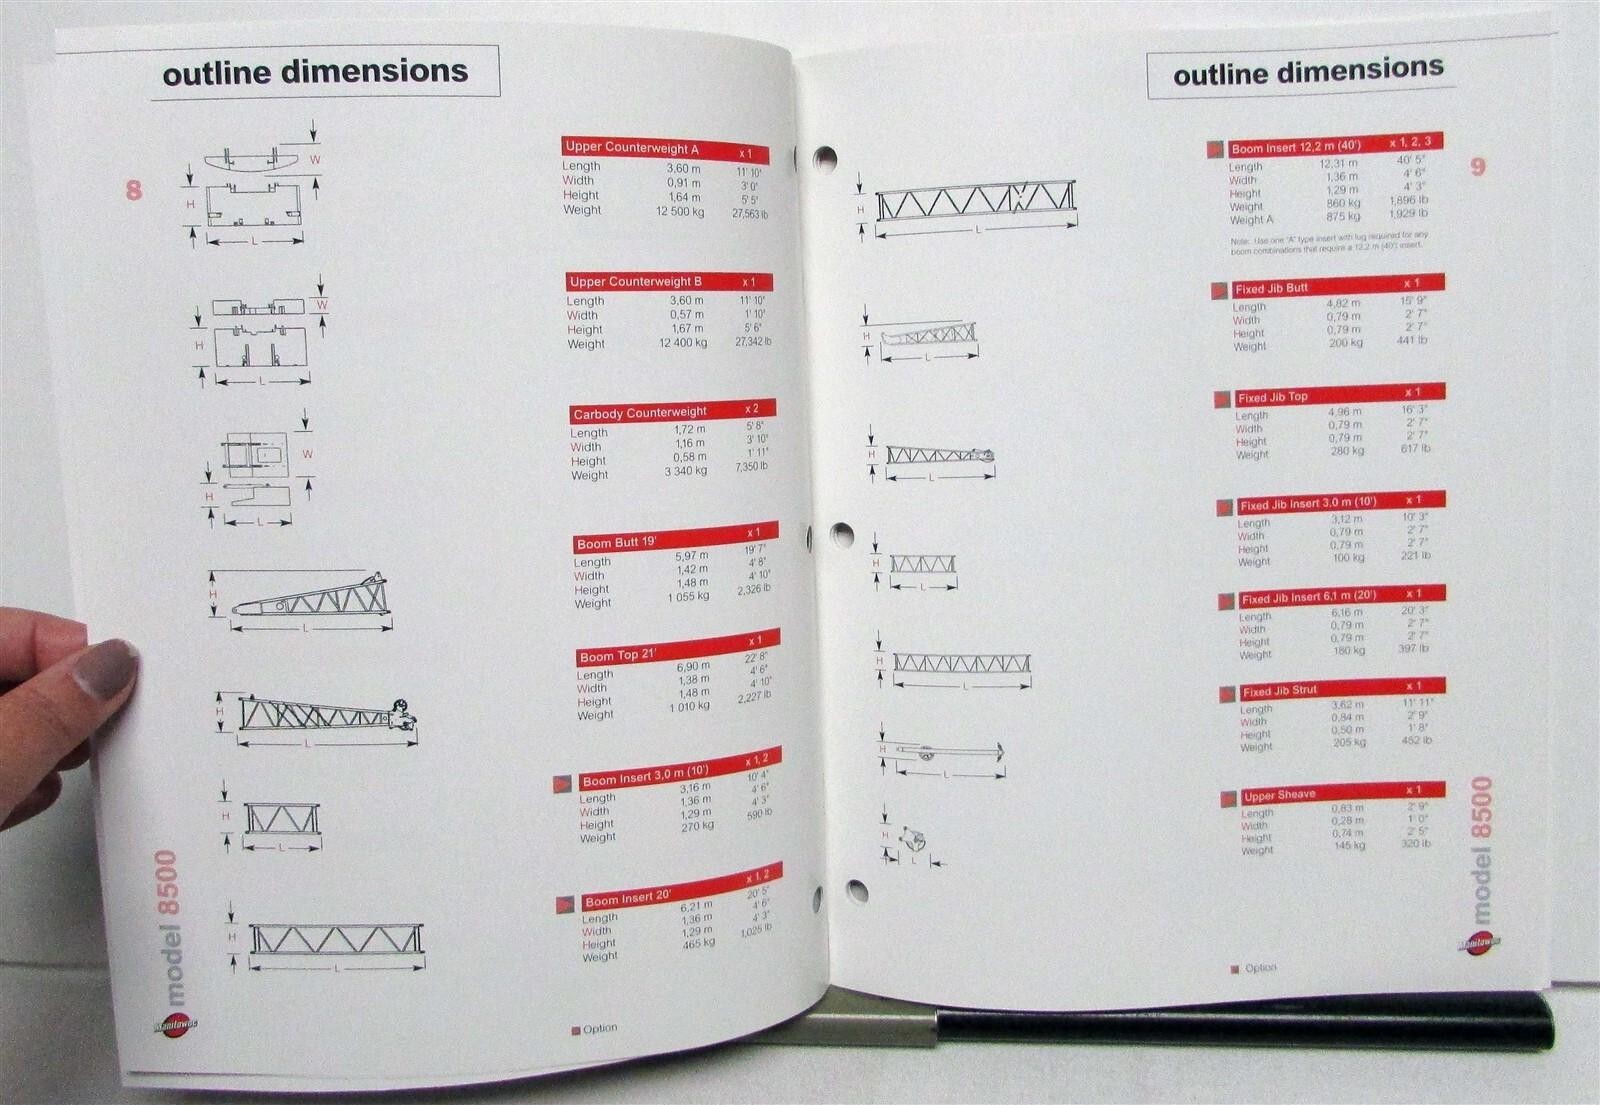 outline dimensions
8
W
H
L
Upper Counterweight A x 1
Length 3,60 m 11' 10"
Width 0,91 m 3' 0"
Height 1,64 m 5' 5"
Weight 12 500 kg 27,563 lb
W
H
L
Upper Counterweight B x 1
Length 3,60 m 11' 10"
Width 0,57 m 1' 10"
Height 1,67 m 5' 6"
Weight 12 400 kg 27,342 lb
W
H
L
Carbody Counterweight x 2
Length 1,72 m 5' 8"
Width 1,16 m 3' 10"
Height 0,58 m 1' 11"
Weight 3 340 kg 7,350 lb
H
L
Boom Butt 19' x 1
Length 5,97 m 19' 7"
Width 1,42 m 4' 8"
Height 1,48 m 4' 10"
Weight 1 055 kg 2,326 lb
H
L
Boom Top 21' x 1
Length 6,90 m 22' 8"
Width 1,38 m 4' 6"
Height 1,48 m 4' 10"
Weight 1 010 kg 2,227 lb
H
L
Boom Insert 3,0 m (10') x 1, 2
Length 3,16 m 10' 4"
Width 1,36 m 4' 6"
Height 1,29 m 4' 3"
Weight 270 kg 590 lb
H
L
Boom Insert 20' x 1, 2
Length 6,21 m 20' 5"
Width 1,36 m 4' 6"
Height 1,29 m 4' 3"
Weight 465 kg 1,025 lb
model 8500
Manitowoc
Option
outline dimensions
9
H
L
Boom Insert 12,2 m (40') x 1, 2, 3
Length 12,31 m 40' 5"
Width 1,36 m 4' 6"
Height 1,29 m 4' 3"
Weight 860 kg 1,896 lb
Weight A 875 kg 1,929 lb
Note: Use one "A" type insert with lug required for any
boom combinations that require a 12,2 m (40') insert.
H
L
Fixed Jib Butt x 1
Length 4,82 m 15' 9"
Width 0,79 m 2' 7"
Height 0,79 m 2' 7"
Weight 200 kg 441 lb
H
L
Fixed Jib Top x 1
Length 4,96 m 16' 3"
Width 0,79 m 2' 7"
Height 0,79 m 2' 7"
Weight 280 kg 617 lb
H
L
Fixed Jib Insert 3,0 m (10') x 1
Length 3,12 m 10' 3"
Width 0,79 m 2' 7"
Height 0,79 m 2' 7"
Weight 100 kg 221 lb
H
L
Fixed Jib Insert 6,1 m (20') x 1
Length 6,16 m 20' 3"
Width 0,79 m 2' 7"
Height 0,79 m 2' 7"
Weight 180 kg 397 lb
H
L
Fixed Jib Strut x 1
Length 3,62 m 11' 11"
Width 0,84 m 2' 9"
Height 0,50 m 1' 8"
Weight 205 kg 452 lb
H
L
Upper Sheave x 1
Length 0,83 m 2' 9"
Width 0,28 m 1' 0"
Height 0,74 m 2' 5"
Weight 145 kg 320 lb
model 8500
Manitowoc
Option